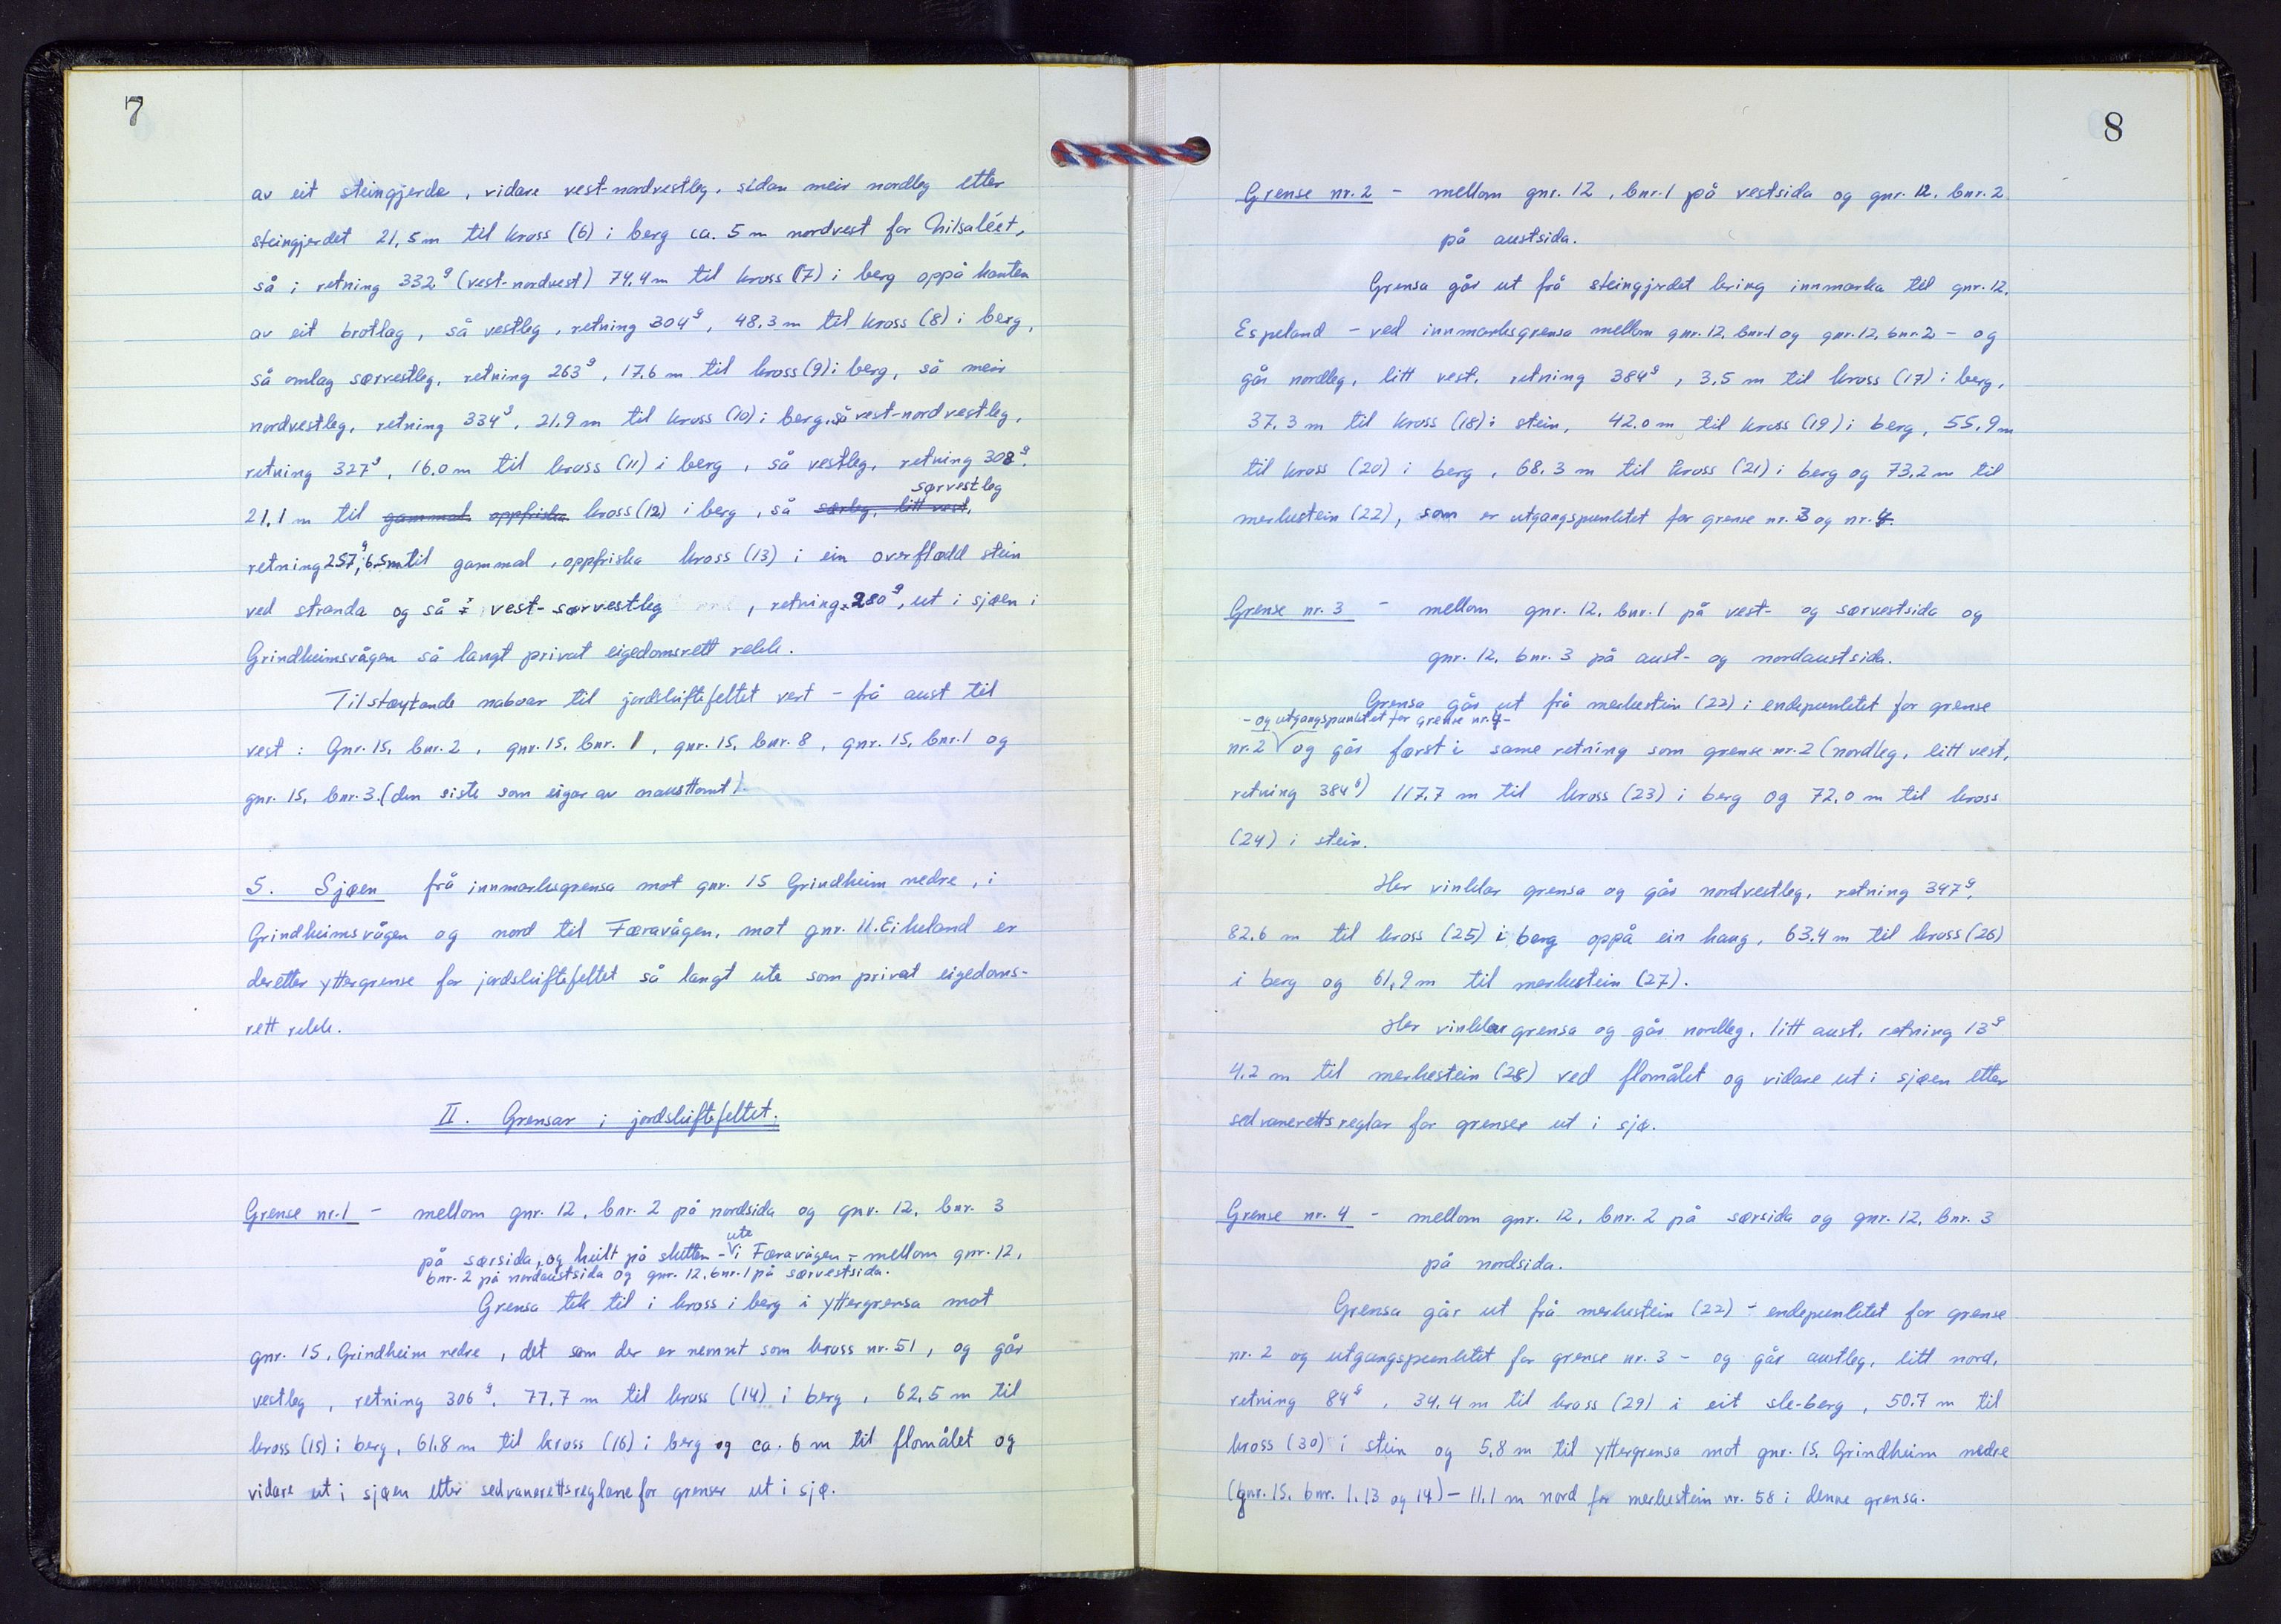 7
av eit steingjerde, vidare vest-nordvestleg, sidan meir nordleg etter
steingjerdet 21,5 m til kross (6) i berg ca. 5 m nordvest for Nilsaléet,
så i retning 332g (vest-nordvest) 74,4 m til kross (7) i berg oppå kanten
av eit brotlag, så vestleg, retning 304g, 48,3 m til kross (8) i berg,
så omlag sørvestleg, retning 263g, 17,6 m til kross (9) i berg, så meir
nordvestleg, retning 334g, 21,9 m til kross (10) i berg, så vest-nordvestleg,
retning 327g, 16.0 m til kross (11) i berg, så vestleg, retning 308g,
sørvestleg
21,1 m til gammal oppfriska kross (12) i berg, så sørleg, litt vest,
retning 257g, 6,5m til gammal, oppfriska kross (13) i ein overflødd stein
ved stranda og så vest-sørvestleg, retning 280g, ut i sjøen i
Grindheimsvågen så langt privat eigedomsrett rekk.
Tilstøytande naboar til jordskiftefeltet vert - frå aust til
vest: Gnr. 15, bnr. 2, gnr. 15, bnr. 1, gnr. 15, bnr. 8, gnr. 15, bnr. 1 og
gnr. 15, bnr. 3. (den siste som eigar av nausttomt).
5. Sjøen frå innmarksgrensa mot gnr. 15 Grindheim nedre, i
Grindheimsvågen og nord til Føravågen, mot gnr. 11. Eikeland er
deretter yttergrense for jordskiftefeltet så langt ute som privat eigedoms-
rett rekk.
II. Grensar i jordskiftefeltet.
Grense nr. 1 - mellom gnr. 12, bnr. 2 på nordsida og gnr. 12, bnr. 3
ute
på sørsida, og heilt på slutten - i Føravågen - mellom gnr. 12,
bnr. 2 på nordaustsida og gnr. 12, bnr. 1 på sørvestsida.
Grensa tek til i kross i berg i yttergrensa mot
gnr. 15, Grindheim nedre, det som der er nemnt som kross nr. 51, og går
vestleg, retning 306g, 77.7 m til kross (14) i berg, 62,5 m til
kross (15) i berg, 61.8 m til kross (16) i berg og ca. 6 m til flomålet og
vidare ut i sjøen etter sedvanerettsreglane for grenser ut i sjø.
8
Grense nr. 2 - mellom gnr. 12, bnr. 1 på vestsida og gnr. 12, bnr. 2
på austsida.
Grensa går ut frå steingjerdet kring innmarka til gnr. 12,
Espeland - ved innmarksgrensa mellom gnr. 12, bnr. 1 og gnr. 12, bnr. 2 - og
går nordleg, litt vest, retning 384g, 3.5 m til kross (17) i berg,
37.3 m til kross (18) i stein, 42.0 m til kross (19) i berg, 55,9 m
til kross (20) i berg, 68,3 m til kross (21) i berg og 73,2 m til
merkestein (22), som er utgangspunktet for grense nr. 3 og nr. 4.
Grense nr. 3 - mellom gnr. 12, bnr. 1 på vest- og sørvestsida og
gnr. 12, bnr. 3 på aust- og nordaustsida.
Grensa går ut frå merkestein (22) i endepunktet for grense
- og utgangspunktet for grense nr. 4 -
nr. 2 og går først i same retning som grense nr. 2 (nordleg, litt vest,
retning 384g) 117.7 m til kross (23) i berg og 72,0 m til kross
(24) i stein.
Her vinklar grensa og går nordvestleg, retning 347g,
82.6 m til kross (25) i berg oppå ein haug, 63.4 m til kross (26)
i berg og 61,9 m til merkestein (27).
Her vinklar grensa og går nordleg, litt aust, retning 13g
4.2 m til merkestein (28) ved flomålet og vidare ut i sjøen etter
sedvanerettsreglar for grenser ut i sjø.
Grense nr. 4 - mellom gnr. 12, bnr. 2 på sørsida og gnr. 12, bnr. 3
på nordsida.
Grensa går ut frå merkestein (22) - endepunktet for grense
nr. 2 og utgangspunktet for grense nr. 3 - og går austleg, litt nord,
retning 84g, 34,4 m til kross (29) i eit sle-berg, 50.7 m til
kross (30) i stein og 5,8 m til yttergrensa mot gnr. 15, Grindheim nedre
(gnr. 15, bnr. 1, 13 og 14) - 11,1 m nord for merkestein nr. 58 i denne grensa.